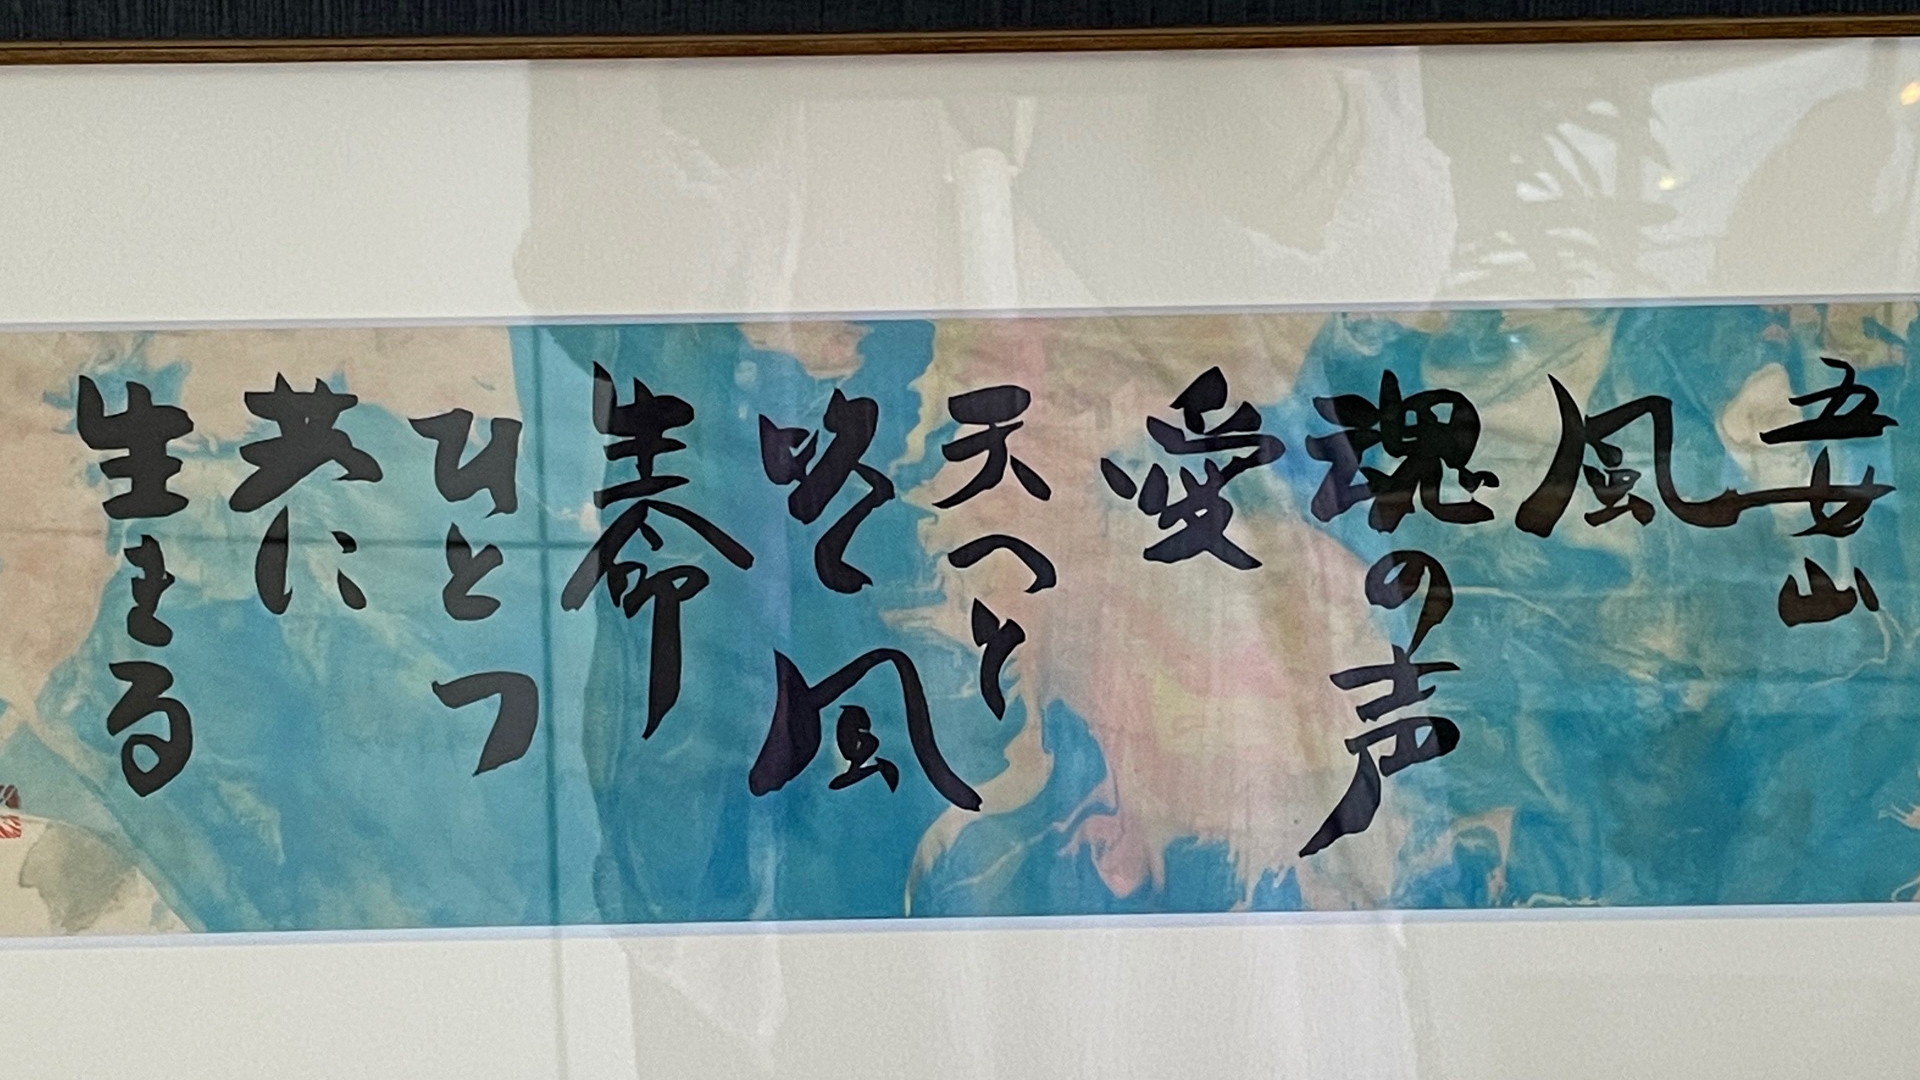 五女山
風
魂の声
愛
天へと
吹く風
生命
ひとつ
共に
生きる